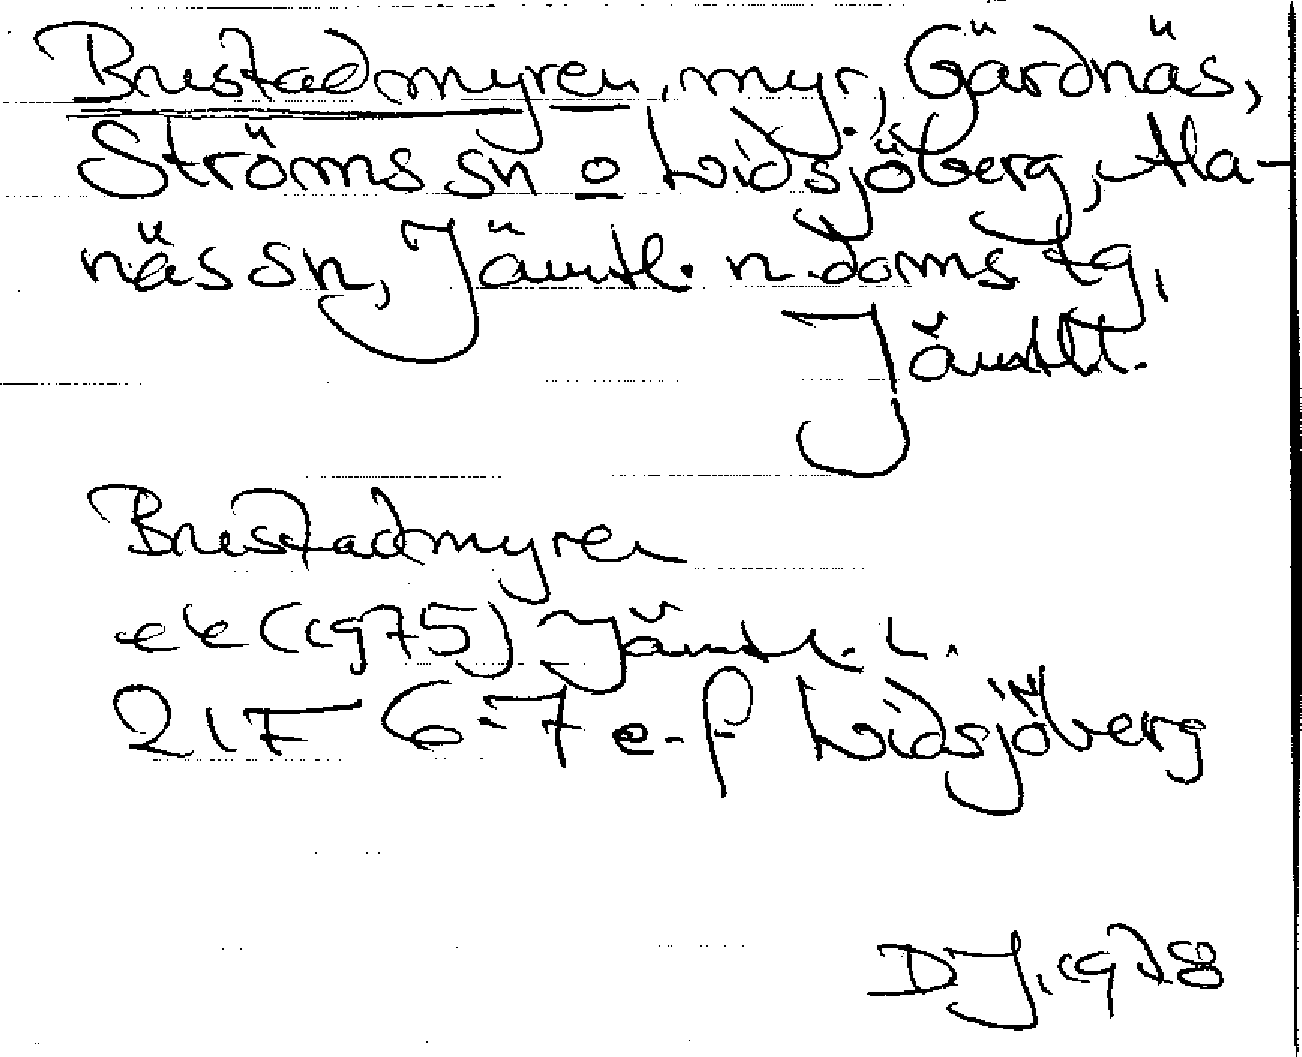 Brustadmyren, myr, Gärdnäs,
Ströms sn o Lidsjöberg, Ala-
näs sn, Jämtl. n. doms tg,
Jämtl.
Brustadmyren
ek (1975) Jämtl. L.
21F 6-7 e-f Lidsjöberg
DJ, 1978